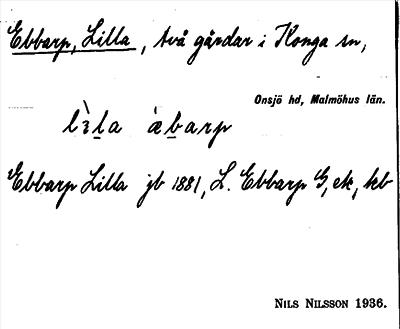 Ebbarp, Lilla, två gårdar i Konga sn,
Onsjö hd, Malmöhus län.
Ebbarp Lilla jb 1881, L. Ebbarp G, ek, kb
NILS NILSSON 1936.